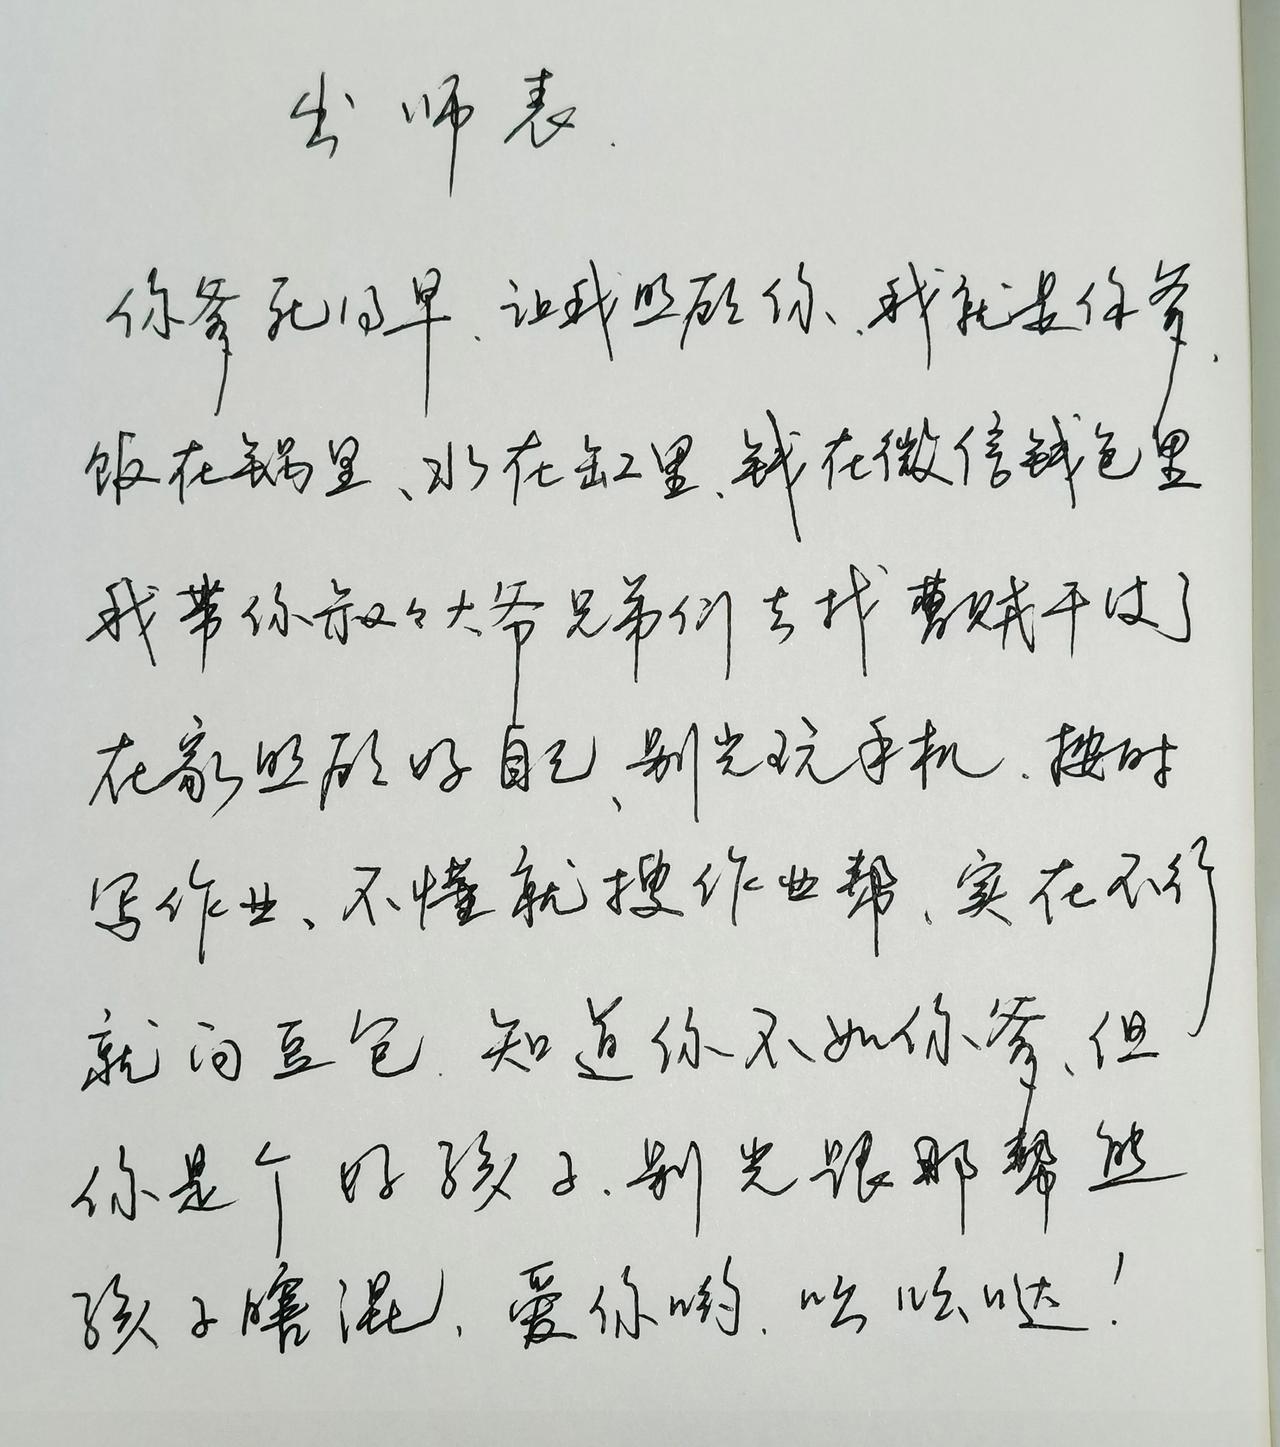 出师表.
你爹死得早、让我照顾你、我就是你爹、
饭在锅里、水在缸里、钱在微信钱包里
我带你叔々大爷兄弟们去找曹贼干仗了
在家照顾好自己、别光玩手机.按时
写作业、不懂就搜作业帮、实在不行
就问豆包.知道你不如你爹、但
你是个好孩子.别光跟那帮熊
孩子瞎混、爱你哟.吆吆哒!